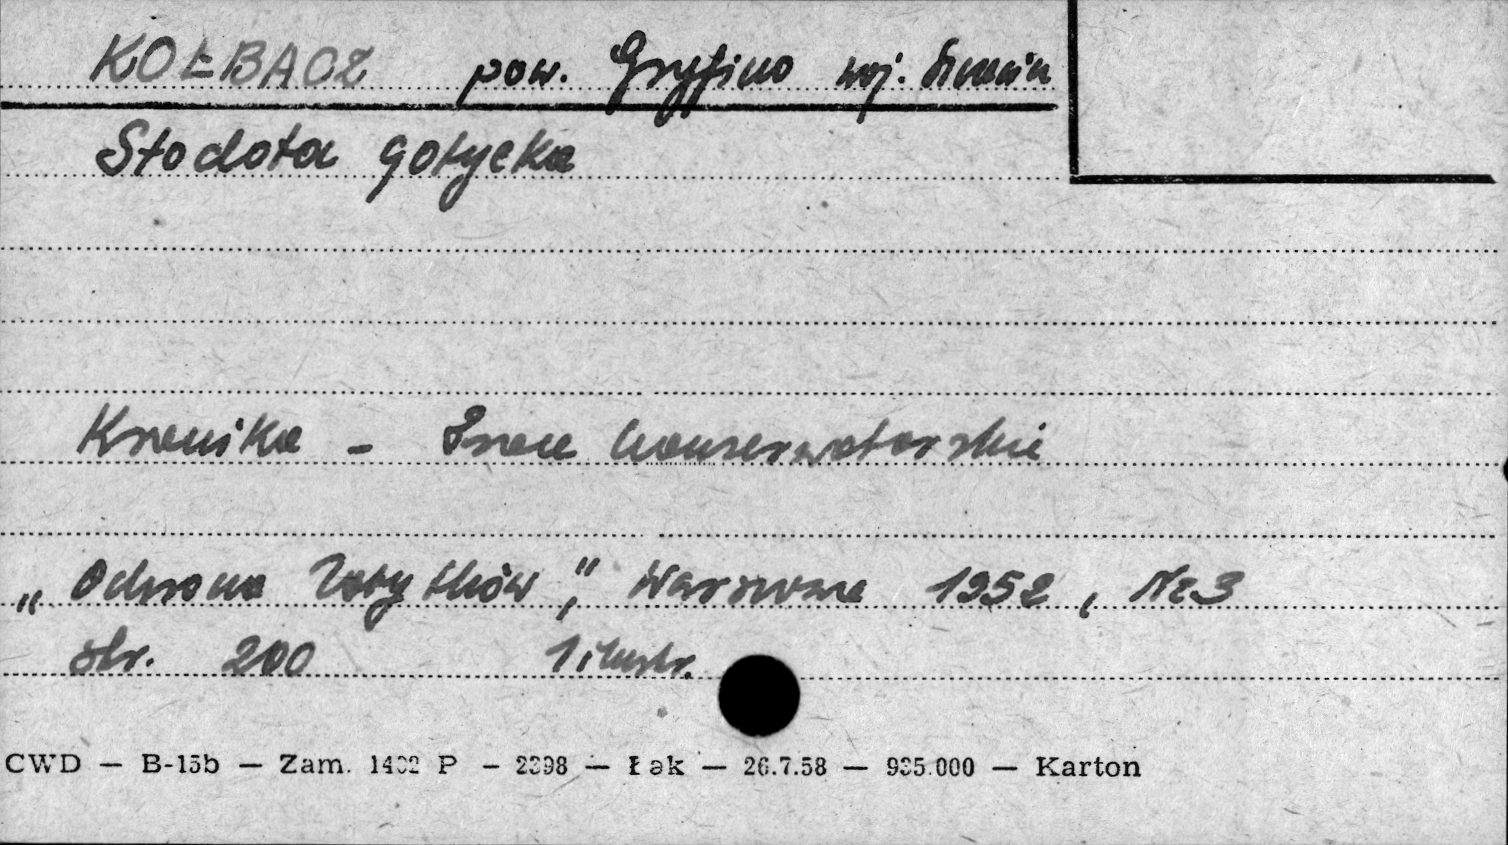 KOŁBACZ pow. Gryfino woj. Szczecin
Stodoła gotycka
Kronika - Prace konserwatorskie
„Ochrona Zabytków", Warszawa 1952, Nr 3
str. 200 1 ilustr.
CWD — B-15b — Zam. 1432 P — 2398 — Łak — 26.7.58 — 935.000 — Karton